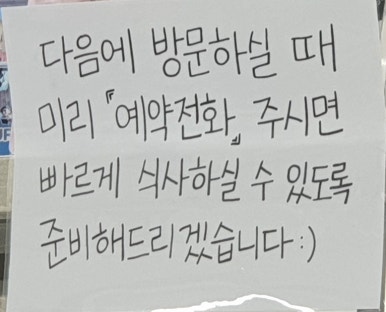 다음에 방문하실 때
미리 『예약전화』 주시면
빠르게 식사하실 수 있도록
준비해드리겠습니다 :)